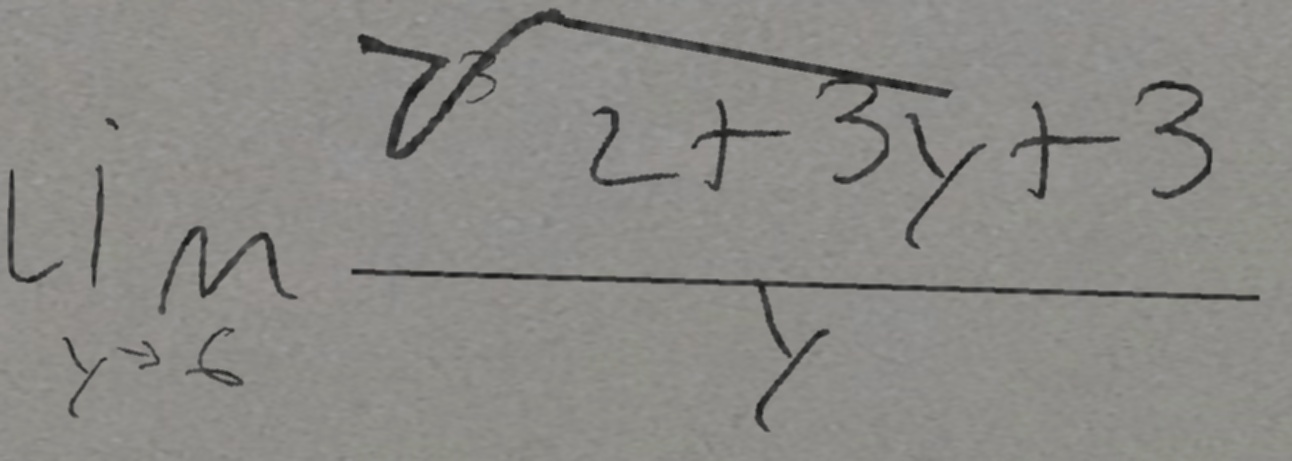 lim y→6 ∛(2+3y)+3 / y